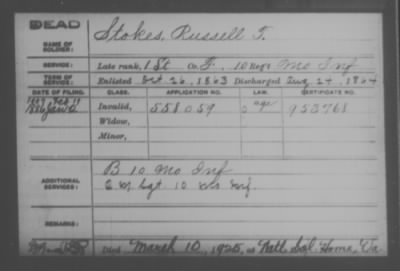 DEAD
NAME OF SOLDIER: Stokes, Russell T.
SERVICE: Late rank, 1 St Co. F, 10 Reg't Mo Inf
TERM OF SERVICE: Enlisted Oct 26, 1863 Discharged Aug 24, 1864
DATE OF FILING. CLASS. APPLICATION NO. LAW. CERTIFICATE NO.
Invalid, 558059 age 953768
Widow,
Minor,
ADDITIONAL SERVICES: B 10 Mo Inf
Q M Sgt 10 Mo Inf.
REMARKS:
Died March 10, 1925, at Natl. Sol. Home, Va